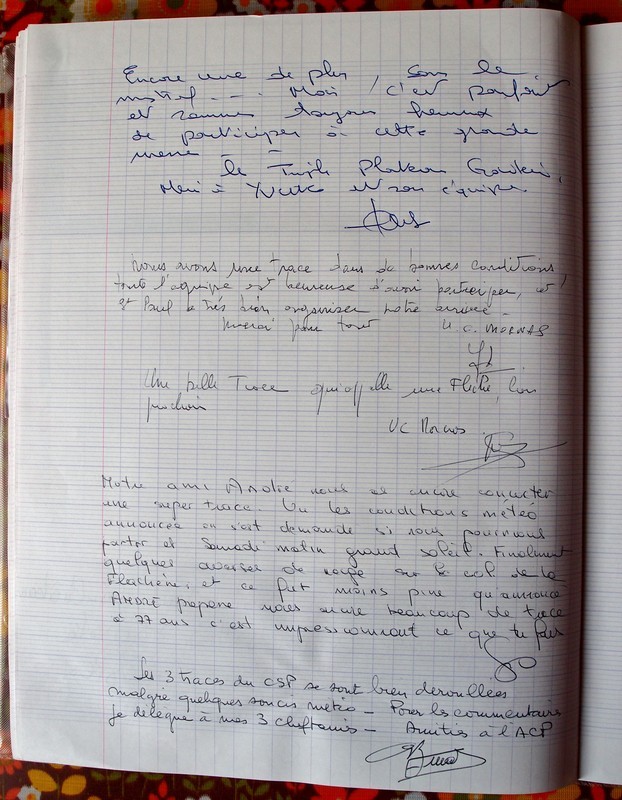 Encore une de plus, sous le
mistral - - - Mais, c'est parfait
et sommes toujours heureux
de participer à cette grande
messe - -
le Triple Plateau
Merci à et son équipe
Nous avons une trace dans de bonnes conditions,
toute l'équipe est heureuse d'avoir participer, et
et Paul a très bien organiser notre arrivée -
merci pour tout U.C. MORNAS
Une belle Trace qui appelle une Flèche l'an
prochain
UC Mornas
Notre ami André nous as encore concocter
une super trace. Vu les conditions météo
annoncée on s'est demande si nous pourrions
partir et Samedi matin grand soleil. Finalment
quelques averses de neige sur le col de la
Flachère, et ce fut moins pire qu'annonce
ANDRÉ prepare nous encore beaucoup de trace
à 77 ans c'est impressionnant ce que tu fais
Les 3 traces du CSP se sont bien deroullées
malgré quelques soucis météo - Pour les commentaires
je délègue à mes 3 cheftains - Amitiés à l'ACP